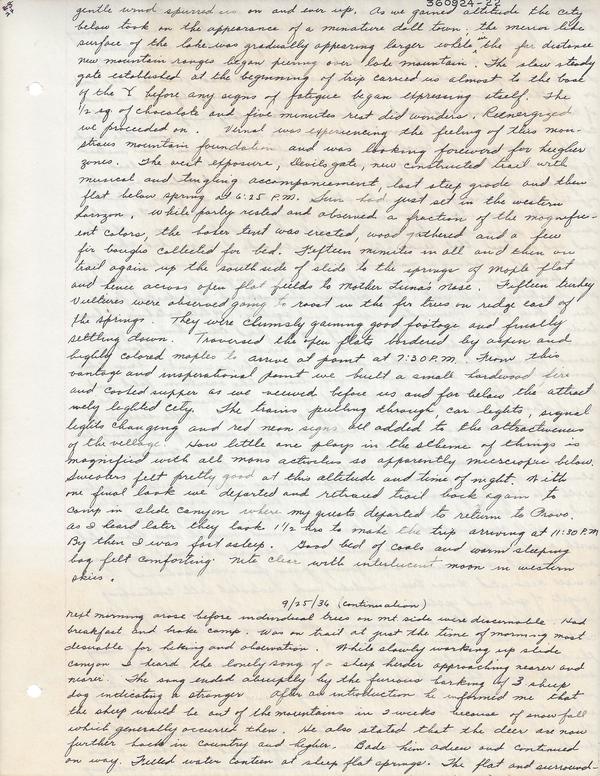 360924-22
gentle wind spurred us on and ever up. As we gained altitude the city
below took on the appearance of a minature doll town. the mirror like
surface of the lake was gradually appearing larger while the far distance
new mountain ranges began piering over lake mountain. The slow steady
gate established at the beginning of trip carried us almost to the base
of the Y before any signs of fatigue began expressing itself. The
1/2 sq of chocolate and five minutes rest did wonders. Reenergized
we proceeded on. Vernal was experiencing the feeling of this mon-
strous mountain foundation and was looking foreword for heigher
zones. The west exposure, Devils gate, new constructed trail with
musical and tingling accompaniment, last steep grade and then
flat below spring at 6:25 P.M. Sun had just set in the western
horizon. While parley rested and observed a fraction of the magnific-
ent colors, the hover tent was erected, wood gathered and a few
fir boughs collected for bed. Fifteen minutes in all and then on
trail again up the southside of slide to the springs of Maple flat
and hence across open flat fields to Mother Luna's Nose. Fifteen turkey
vultures were observed going to roost in the fir trees on ridge east of
the springs. They were clumsly gaining good footage and finally
settling down. Traversed the open flats bordered by aspen and
highly colored maples to arrive at point at 7:30 P.M. From this
vantage and inspirational point we built a small hardwood fire
and cooked supper as we viewed before us and far below the attract
ively lighted city. The trains pulling through, car lights, signal
lights changing and red neon signs all added to the attractiveness
of the village. How little one plays in the scheme of things is
magnified with all mans activities so apparently microscopic below.
Sweaters felt pretty good at this altitude and time of night. With
one final look we departed and retraced trail back again to
camp in slide canyon where my guests departed to return to Provo.
As I heard later they took 1 1/2 hrs to make the trip arriving at 11:30 P.M
By then I was fast asleep. Good bed of coals and warm sleeping
bag felt comforting. Nite clear with interlucent moon in western
skies.
9/25/36 (continuation)
Next morning arose before individual trees on mt. side were discernable. Had
breakfast and broke camp. Was on trail at just the time of morning most
desirable for hiking and observation. While slowly working up slide
canyon I heard the lonely song of a sheep herder approaching nearer and
nearer. The song ended abruptly by the furious barking of 3 sheep
dog indicating a stranger. After an introduction he informed me that
the sheep would be out of the mountains in 2 weeks because of snow fall
which generally occurred then. He also stated that the deer are now
further back in country and higher. Bade him adieu and continued
on way. Filled water canteen at sheep flat springs. The flat and surround-